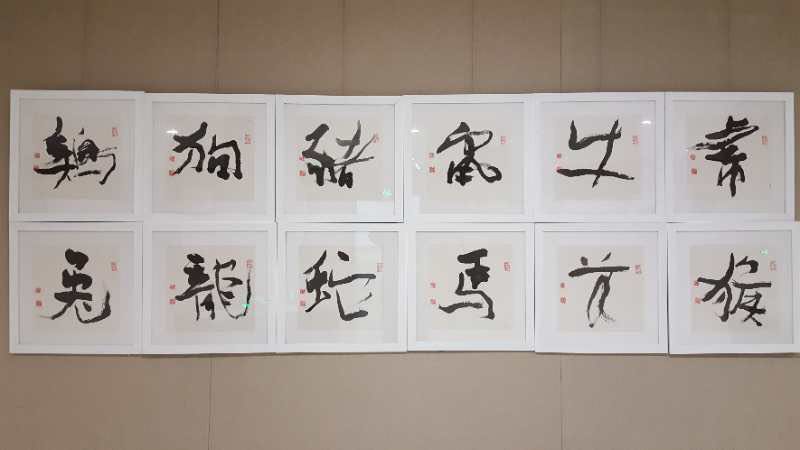 鷄 狗 豬 鼠 牛 虎
兔 龍 蛇 馬 羊 猴